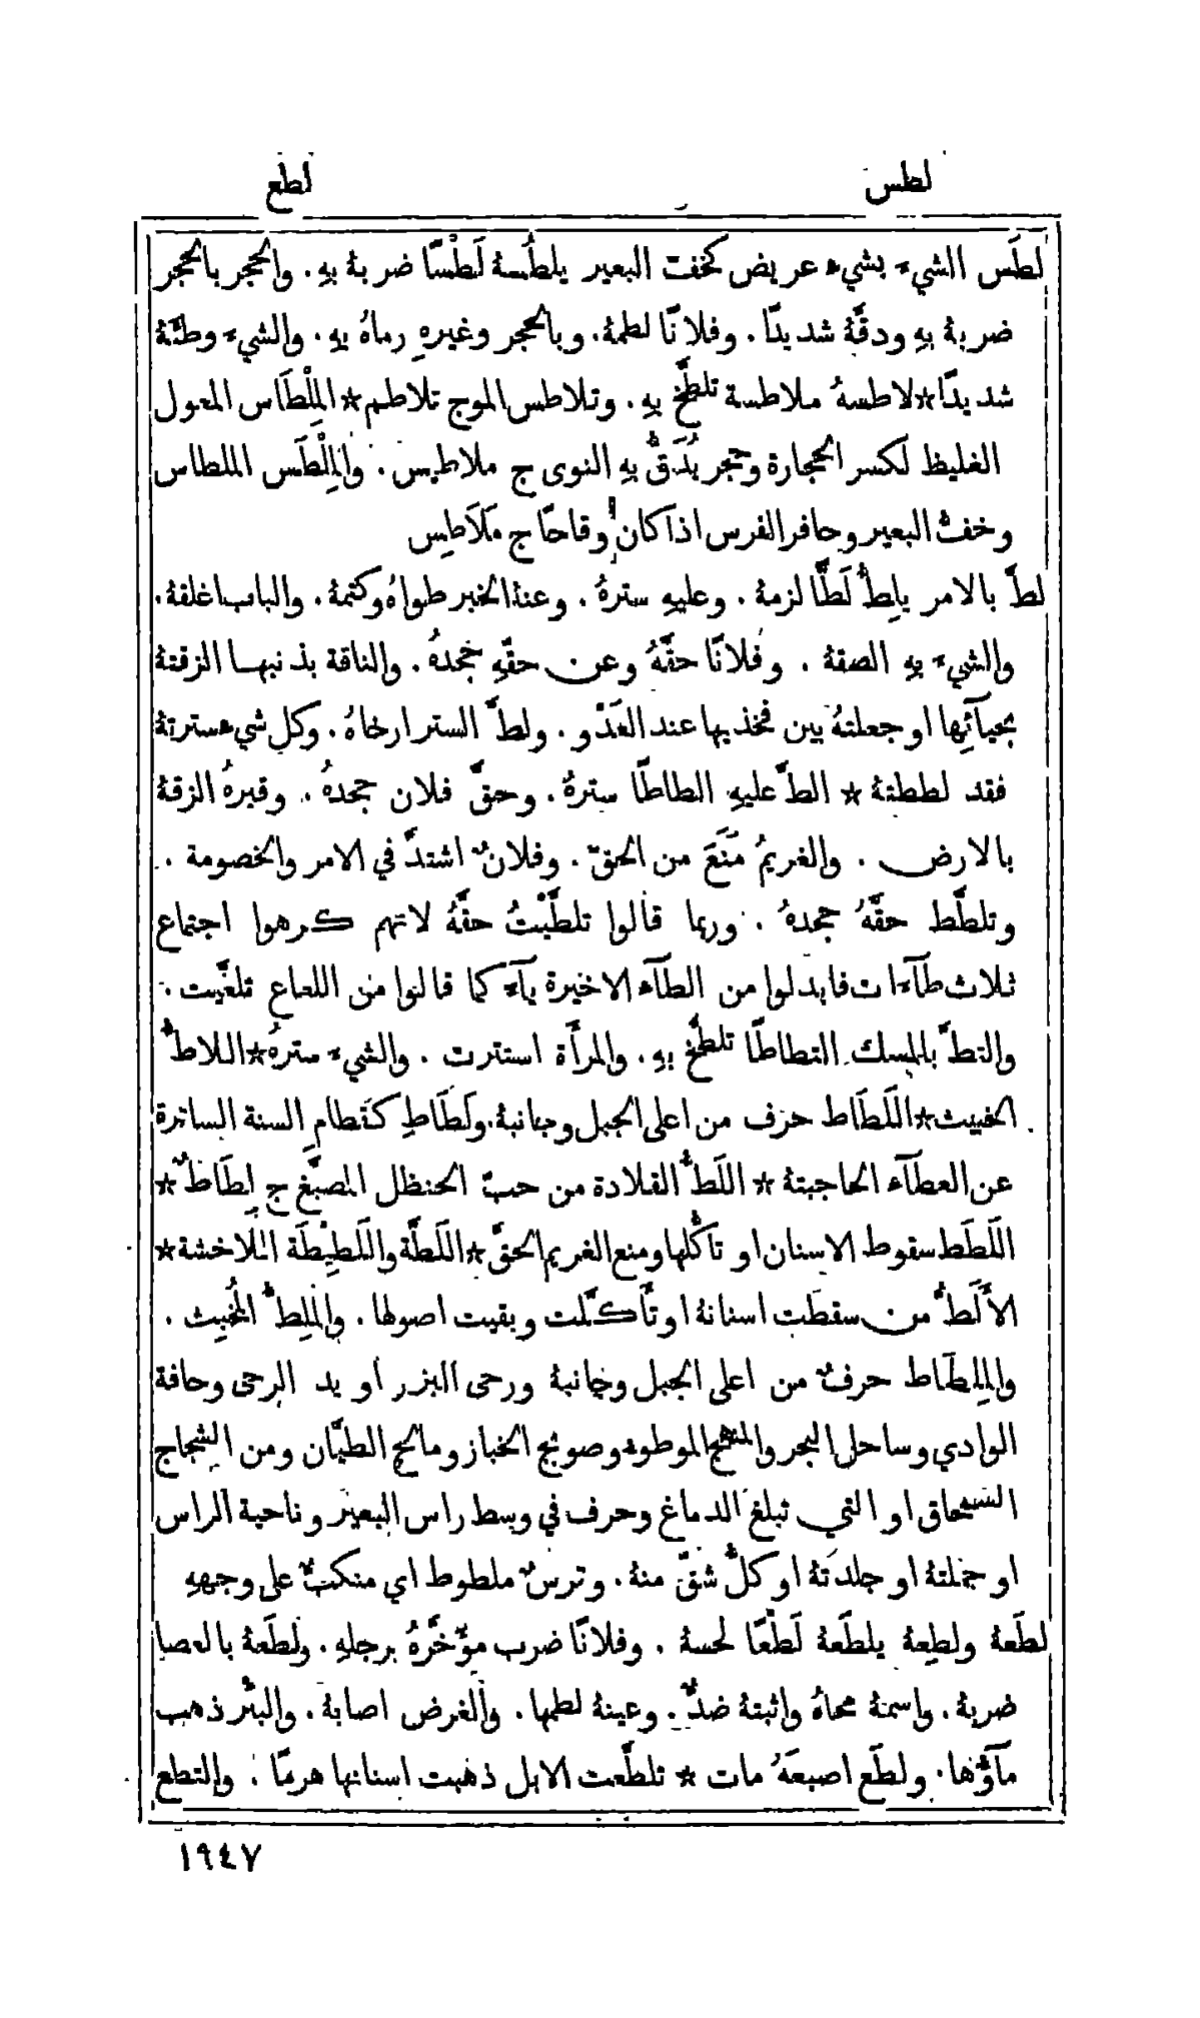 لطس
لطع
لطَس الشيءَ بشيءٍ عريض كخفّ البعير يلطُسهُ لَطْسًا ضربهُ بهِ. والحجر بالحجر
ضربهُ بهِ ودقَّهُ شديدًا. وفلانًا لطمهُ. وبالحجر وغيرهِ رماهُ بهِ. والشيءَ وطئَهُ
شديدًا * لاطسهُ ملاطسة تلطَّخ بهِ. وتلاطس الموج تلاطم * المِلْطَاس المعول
الغليظ لكسر الحجارة وحجر يُدَقُّ بهِ النوى ج ملاطيس. والمِلْطَس الملطاس
وخفُّ البعير وحافر الفرس اذا كان وقاحًا ج مَلَاطِس
لطَّ بالامر يلِطُّ لَطًّا لزمهُ. وعليهِ سترهُ. وعنهُ الخبر طواهُ وكتمهُ. والباب اغلقهُ.
والشيءَ بهِ الصقهُ. وفلانًا حقَّهُ وعن حقّهِ جحدهُ. والناقة بذنبهـا الزقتهُ
بحيآئِها او جعلتهُ بين فخذيها عند العَدْو. ولطَّ الستر ارخاهُ. وكل شيءٍ سترتهُ
فقد لططتهُ * الطَّ عليهِ الطاطًا سترهُ. وحقَّ فلان جحدهُ. وقبرهُ الزقهُ
بالارض. والغريمُ مَنَعَ من الحقّ. وفلانٌ اشتدَّ في الامر والخصومة.
وتلطَّط حقَّهُ جحدهُ. وربما قالوا تلطَّيْتُ حقَّهُ لانهم كرهوا اجتماع
ثلاث طآءات فابدلوا من الطآء الاخيرة يآءً كما قالوا من اللعاع تلعَّيت.
والتطَّ بالمسك التطاطًا تلطَّخ بهِ. والمرأَة استترت. والشيءَ سترهُ * اللاطُّ
الخبيث * اللَطَاط حرف من اعلى الجبل وجانبهُ. ولَطَاطِ كقَطامِ السنة الساترة
عن العطآء الحاجبتهُ * اللَطُّ القلادة من حبّ الحنظل المصبَّغ ج لِطَاطٌ *
اللَطَط سقوط الاسنان او تأَكُّلها ومنع الغريم الحقَّ * اللَطَّة واللَطِيْطَة اللَاخشة *
الأَلَطُّ من سقطت اسنانهُ او تأَكَّلت وبقيت اصولها. والمِلطُّ المُخبِث.
والمِلطَاط حرفٌ من اعلى الجبل وجانبهُ ورحى البزر او يد الرحى وحافة
الوادي وساحل البحر والمنهج الموطوءُ وصوبج الخباز ومالج الطيَّان ومن الشجاج
السمحاق او التي تبلغ الدماغ وحرف في وسط راس البعير وناحية الراس
او جملتهُ او جلدتهُ او كلُّ شقٍّ منهُ. وترسٌ ملطوط اي منكبٌّ على وجههِ
لطَعهُ ولطِعهُ يلطَعهُ لَطْعًا لحسهُ. وفلانًا ضرب مؤَخَّرهُ برجلهِ. ولطَعهُ بالعصا
ضربهُ. واسمهُ محاهُ واثبتهُ ضدٌّ. وعينهُ لطمها. والغرض اصابهُ. والبئْر ذهب
مآؤُها. ولطَع اصبعَهُ مات * تلطَّعت الابل ذهبت اسنانها هرمًا. والتطع
١٩٤٧